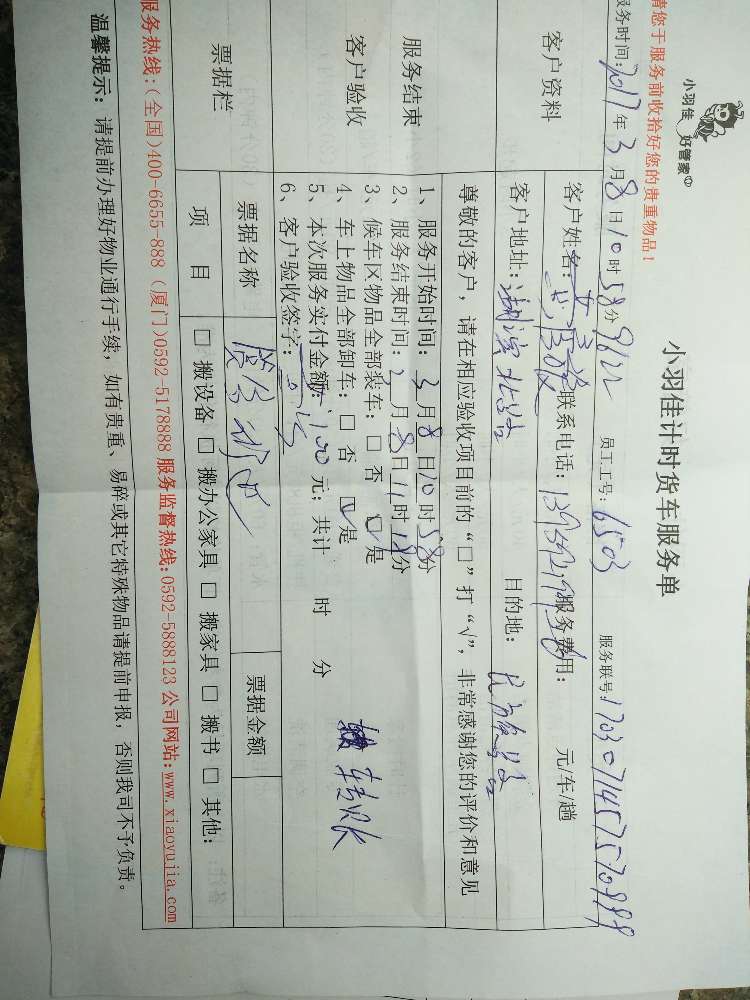 小羽佳 好管家
小羽佳计时货车服务单
请您于服务前收拾好您的贵重物品！
服务时间：2017年3月8日10时58分 9622 员工工号：6503 服务联号：
客户资料
客户姓名： 联系电话： 服务费用： 元/车/趟
客户地址：湖滨北路 目的地：
服务结束
客户验收
尊敬的客户，请在相应验收项目前的“□”打“√”，非常感谢您的评价和意见
1、服务开始时间：3月8日10时58分
2、服务结束时间：月8日11时18分
3、候车区物品全部装车：□否 ☑是
4、车上物品全部卸车：□否 ☑是
5、本次服务实付金额：100元；共计 时 分
6、客户验收签字： 转账
票据栏
票据名称 票据金额
项目 □搬设备 □搬办公家具 □搬家具 □搬书 □其他：
服务热线：(全国)400-6655-888 (厦门)0592-5178888 服务监督热线：0592-5888123 公司网站：www.xiaoyujia.com
温馨提示：请提前办理好物业通行手续，如有贵重、易碎或其它特殊物品请提前申报，否则我司不予负责。